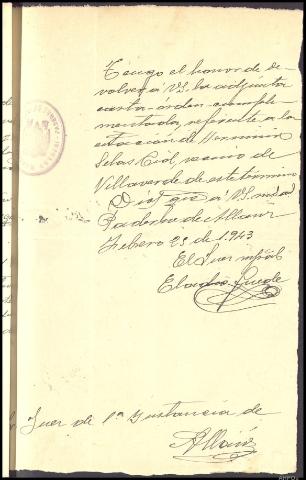 Tengo el honor de de-
volver a VS. la adjunta
carta-órden-cumpli-
mentada, referente a la
citación de Herminia
Selas Cid, vecino de
Villaverde de este término
Dios gue a VS. m. a.
Paderne de Allariz
Febrero 23 de 1.943
El Juez mpál
Eladio
Juez de 1ª Instancia de
Allariz